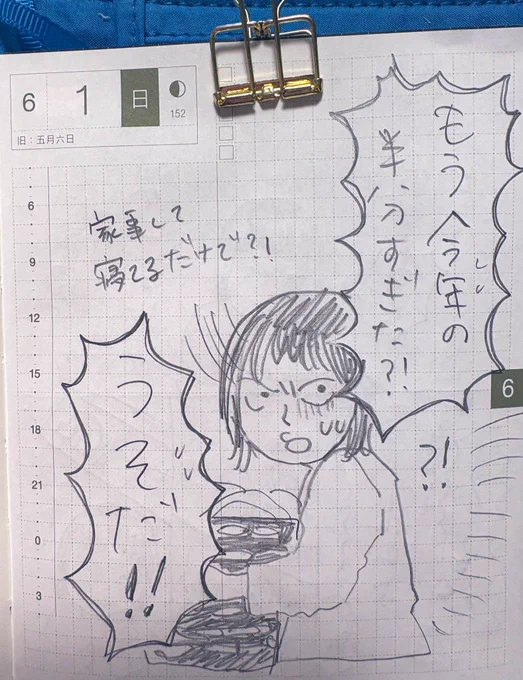 6 1 日
152
旧：五月六日
もう今年の
半分すぎた?!
家事して
寝てるだけで?!
?!
うそだ!!
6
9
12
15
18
21
0
3
6